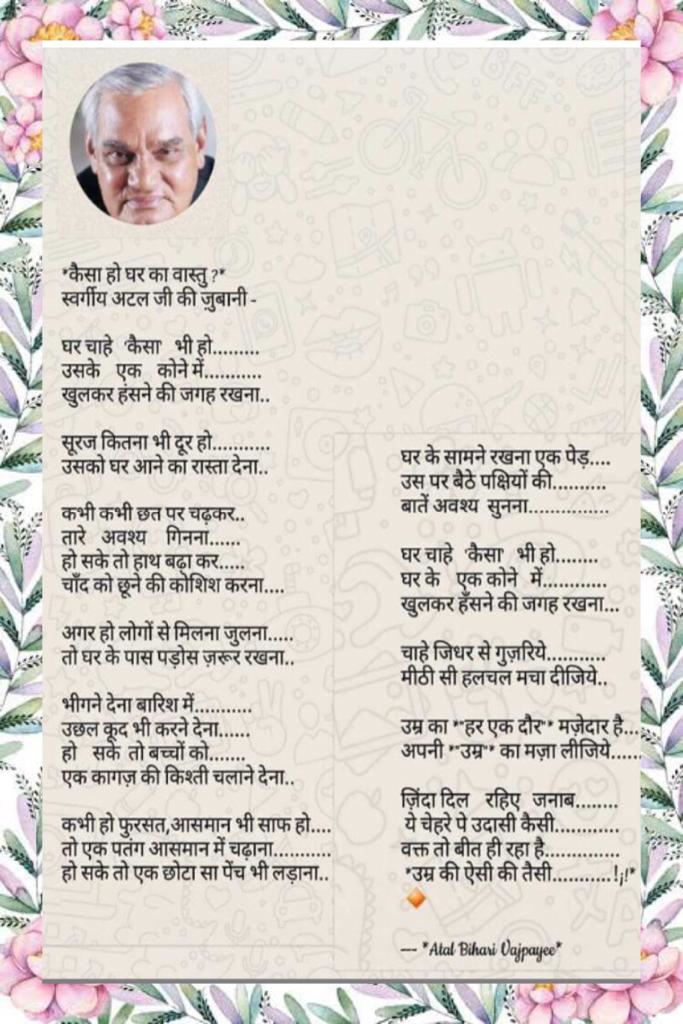 *कैसा हो घर का वास्तु ?*
स्वर्गीय अटल जी की ज़ुबानी -
घर चाहे 'कैसा' भी हो.........
उसके एक कोने में...........
खुलकर हंसने की जगह रखना..
सूरज कितना भी दूर हो...........
उसको घर आने का रास्ता देना..
कभी कभी छत पर चढ़कर..
तारे अवश्य गिनना......
हो सके तो हाथ बढ़ा कर.....
चाँद को छूने की कोशिश करना....
अगर हो लोगों से मिलना जुलना.....
तो घर के पास पड़ोस ज़रूर रखना..
भीगने देना बारिश में...........
उछल कूद भी करने देना......
हो सके तो बच्चों को.......
एक कागज़ की किश्ती चलाने देना..
कभी हो फुरसत,आसमान भी साफ हो....
तो एक पतंग आसमान में चढ़ाना...........
हो सके तो एक छोटा सा पेंच भी लड़ाना..
घर के सामने रखना एक पेड़....
उस पर बैठे पक्षियों की..........
बातें अवश्य सुनना...............
घर चाहे 'कैसा' भी हो........
घर के एक कोने में............
खुलकर हँसने की जगह रखना...
चाहे जिधर से गुज़रिये...........
मीठी सी हलचल मचा दीजिये..
उम्र का *"हर एक दौर"* मज़ेदार है...
अपनी *"उम्र"* का मज़ा लीजिये......
ज़िंदा दिल रहिए जनाब........
ये चेहरे पे उदासी कैसी............
वक्त तो बीत ही रहा है..............
*उम्र की ऐसी की तैसी...........!¡!*
--- *Atal Bihari Vajpayee*